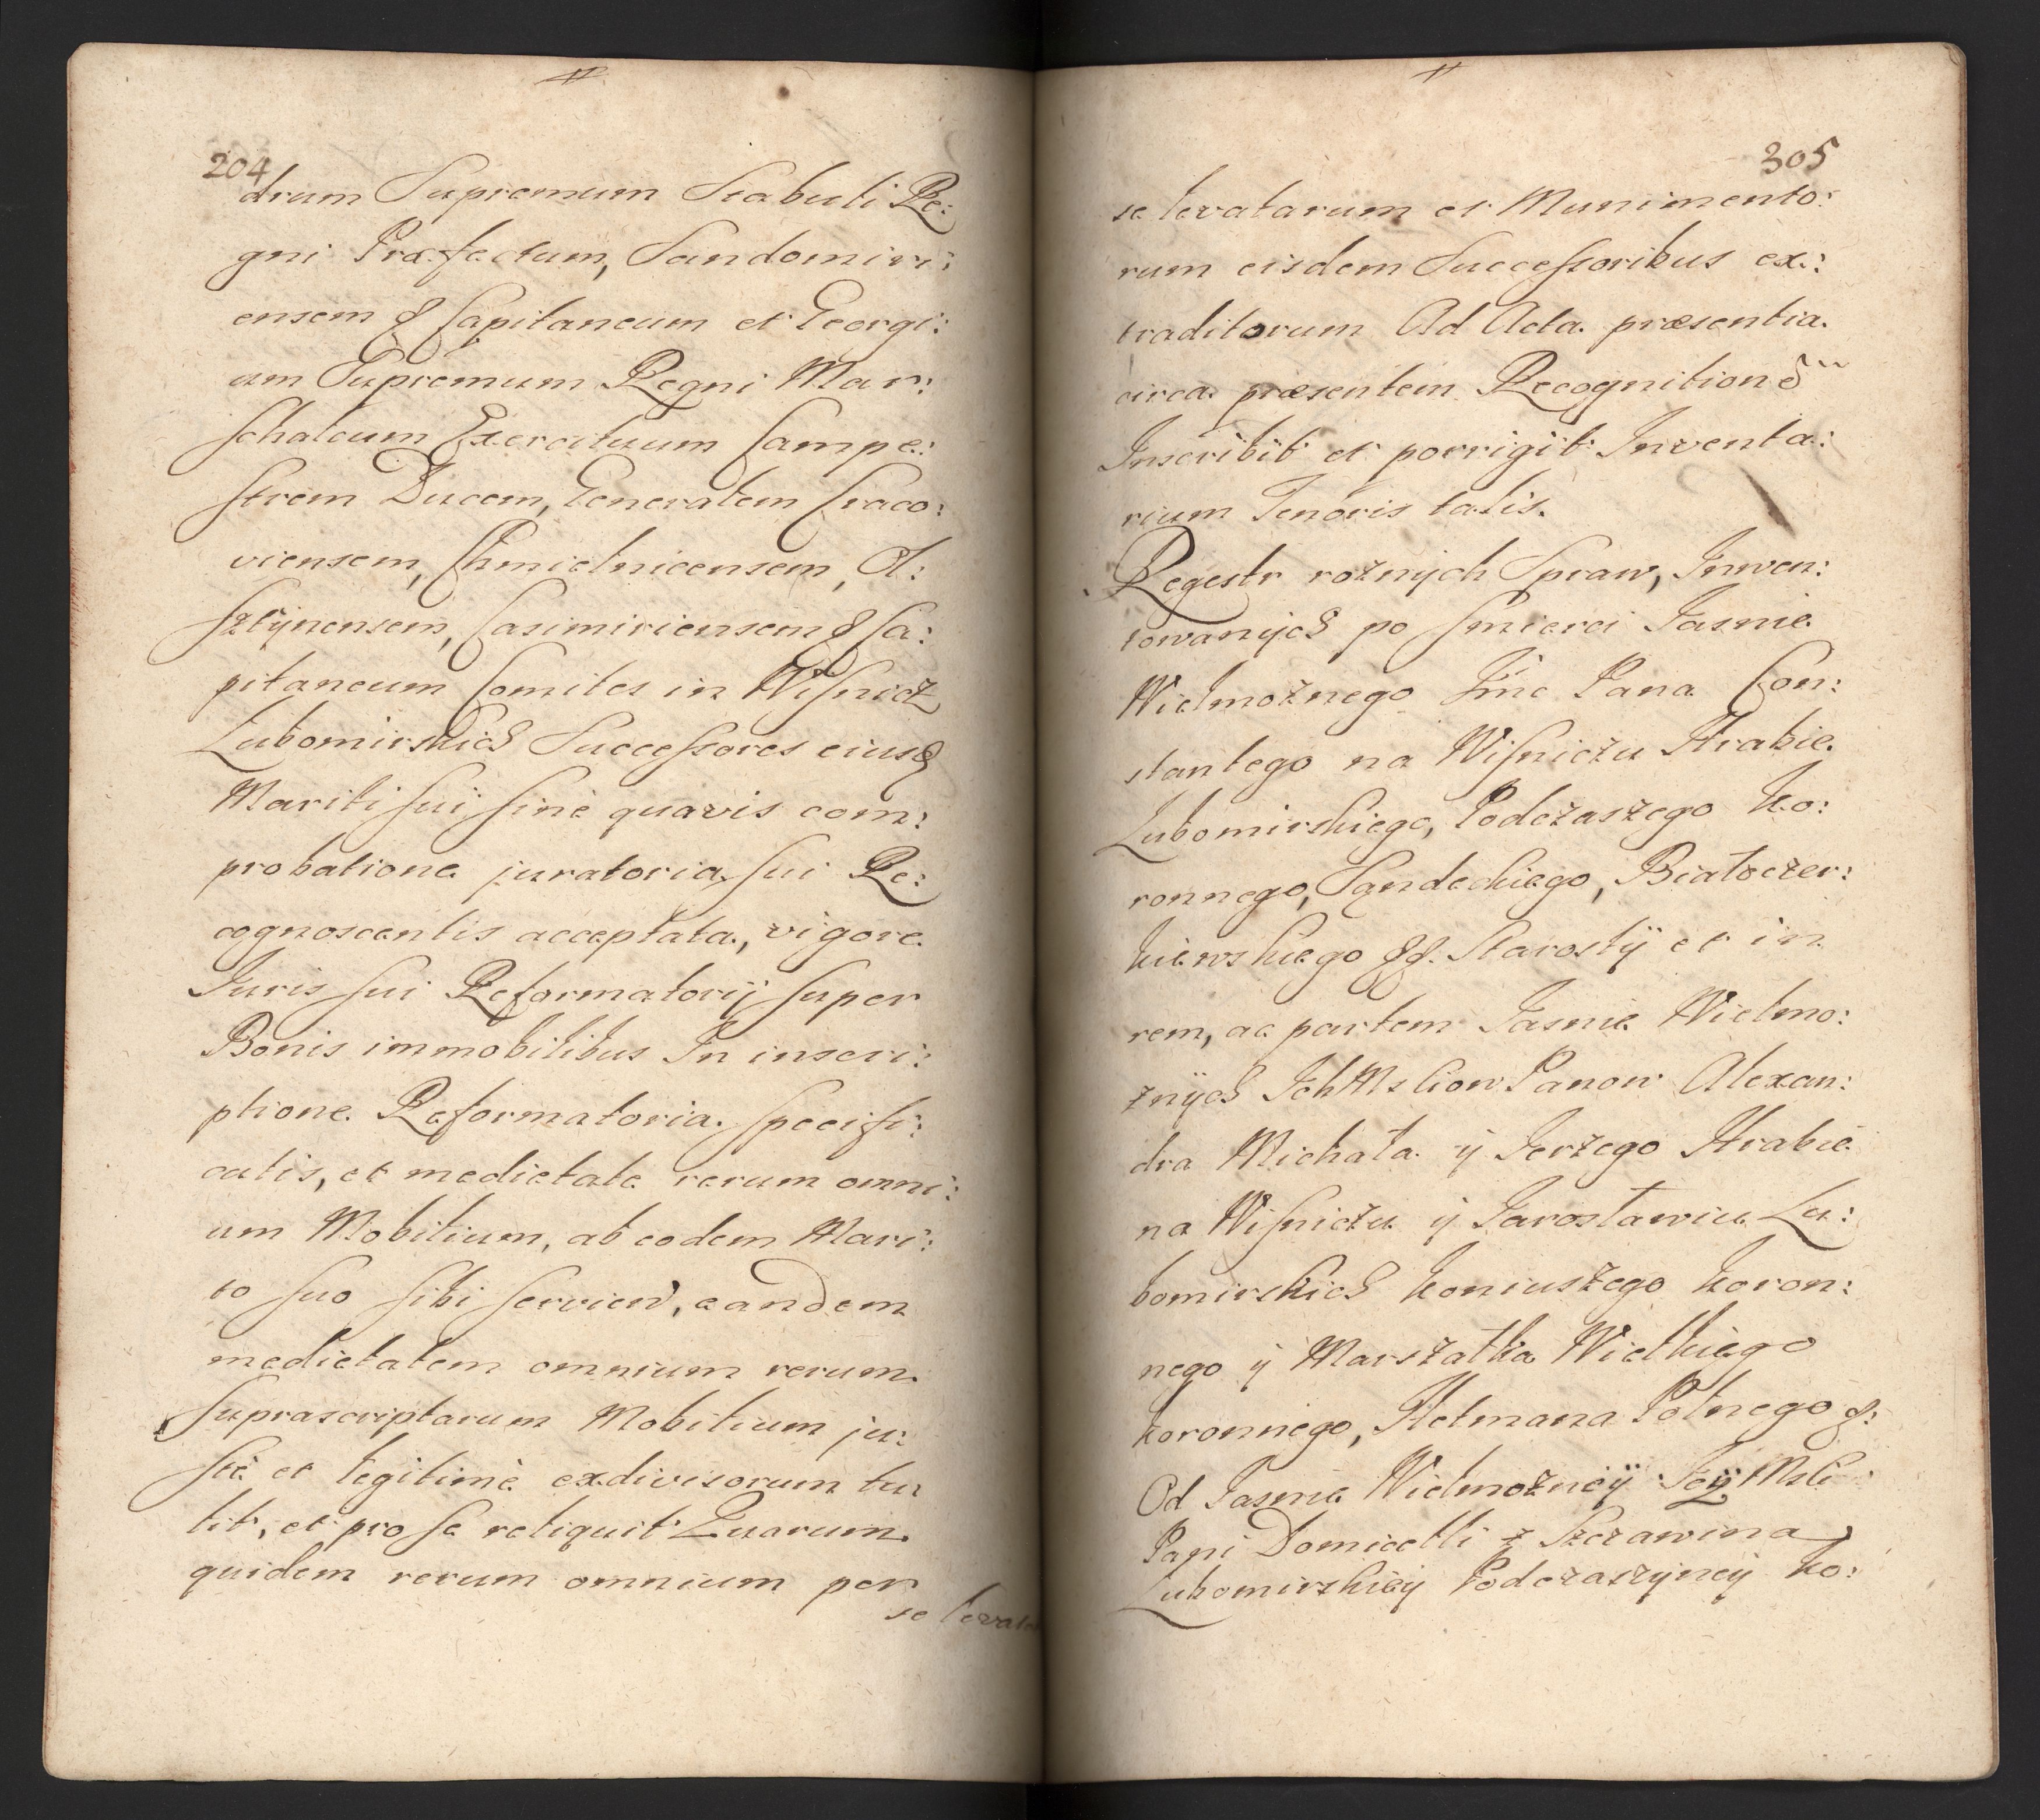 204
drum Supremum Stabuli Re:
gni Præfectum, Sandomiri:
ensem & Capitaneum et Georgi:
um Supremum Regni Mar:
schalcum Exercituum Campe:
strem Ducem, Generalem Craco:
viensem, Chmielnicensem, Ol:
sztÿnensem, Casimiriensem & Ca:
pitaneum Comites in Wisnicz
Lubomirskich Successores eiusd
Mariti sui sinè quavis com:
probatione juratoria sui Re:
cognoscentis acceptata, vigore
Juris sui Reformatorÿ super
Bonis immobilibus In inscri:
ptione Reformatoria speciffi:
catis, et medietate rerum omni:
um Mobilium, ab eodem Mari:
to suo sibi servien, eandem
medietatem omnium rerum
suprascriptarum Mobilium ju:
stè et legitimè exdivisorum tu:
lit, et pro se reliquit Quarum
quidem rerum omnium per
se levata
305
se levatarum et Munimento:
rum eisdem Successoribus ex:
traditorum Ad Acta præsentia
circa præsentem Recognitionem
Inscribit et porrigit Inventa:
rium Tenoris talis.
Regestr rożnÿch Spraw, Inwen:
towanÿch po smierci Jasnie
Wielmożnego Jmc Pana Con:
stantego na Wisniczu Hrabie
Lubomirskiego, Podczaszego Ko:
ronnego, Sandeckiego, Białoczer:
kiewskiego &&. Starostÿ et in
rem, ac partem Jasnie Wielmo:
żnÿch IchMsciow Panow Alexan:
dra Michała ÿ Jerzego Hrabie
na Wisniczu ÿ Jarosławiu Lu:
bomirskich koniuszego koron:
nego ÿ Marszałka Wielkiego
koronnego, Hetmana Polnego &:
Od Jasnie Wielmożneÿ JeÿMsci
Pani Domicelli z Szczawina
Lubomirskieÿ Podczaszÿneÿ Ko: